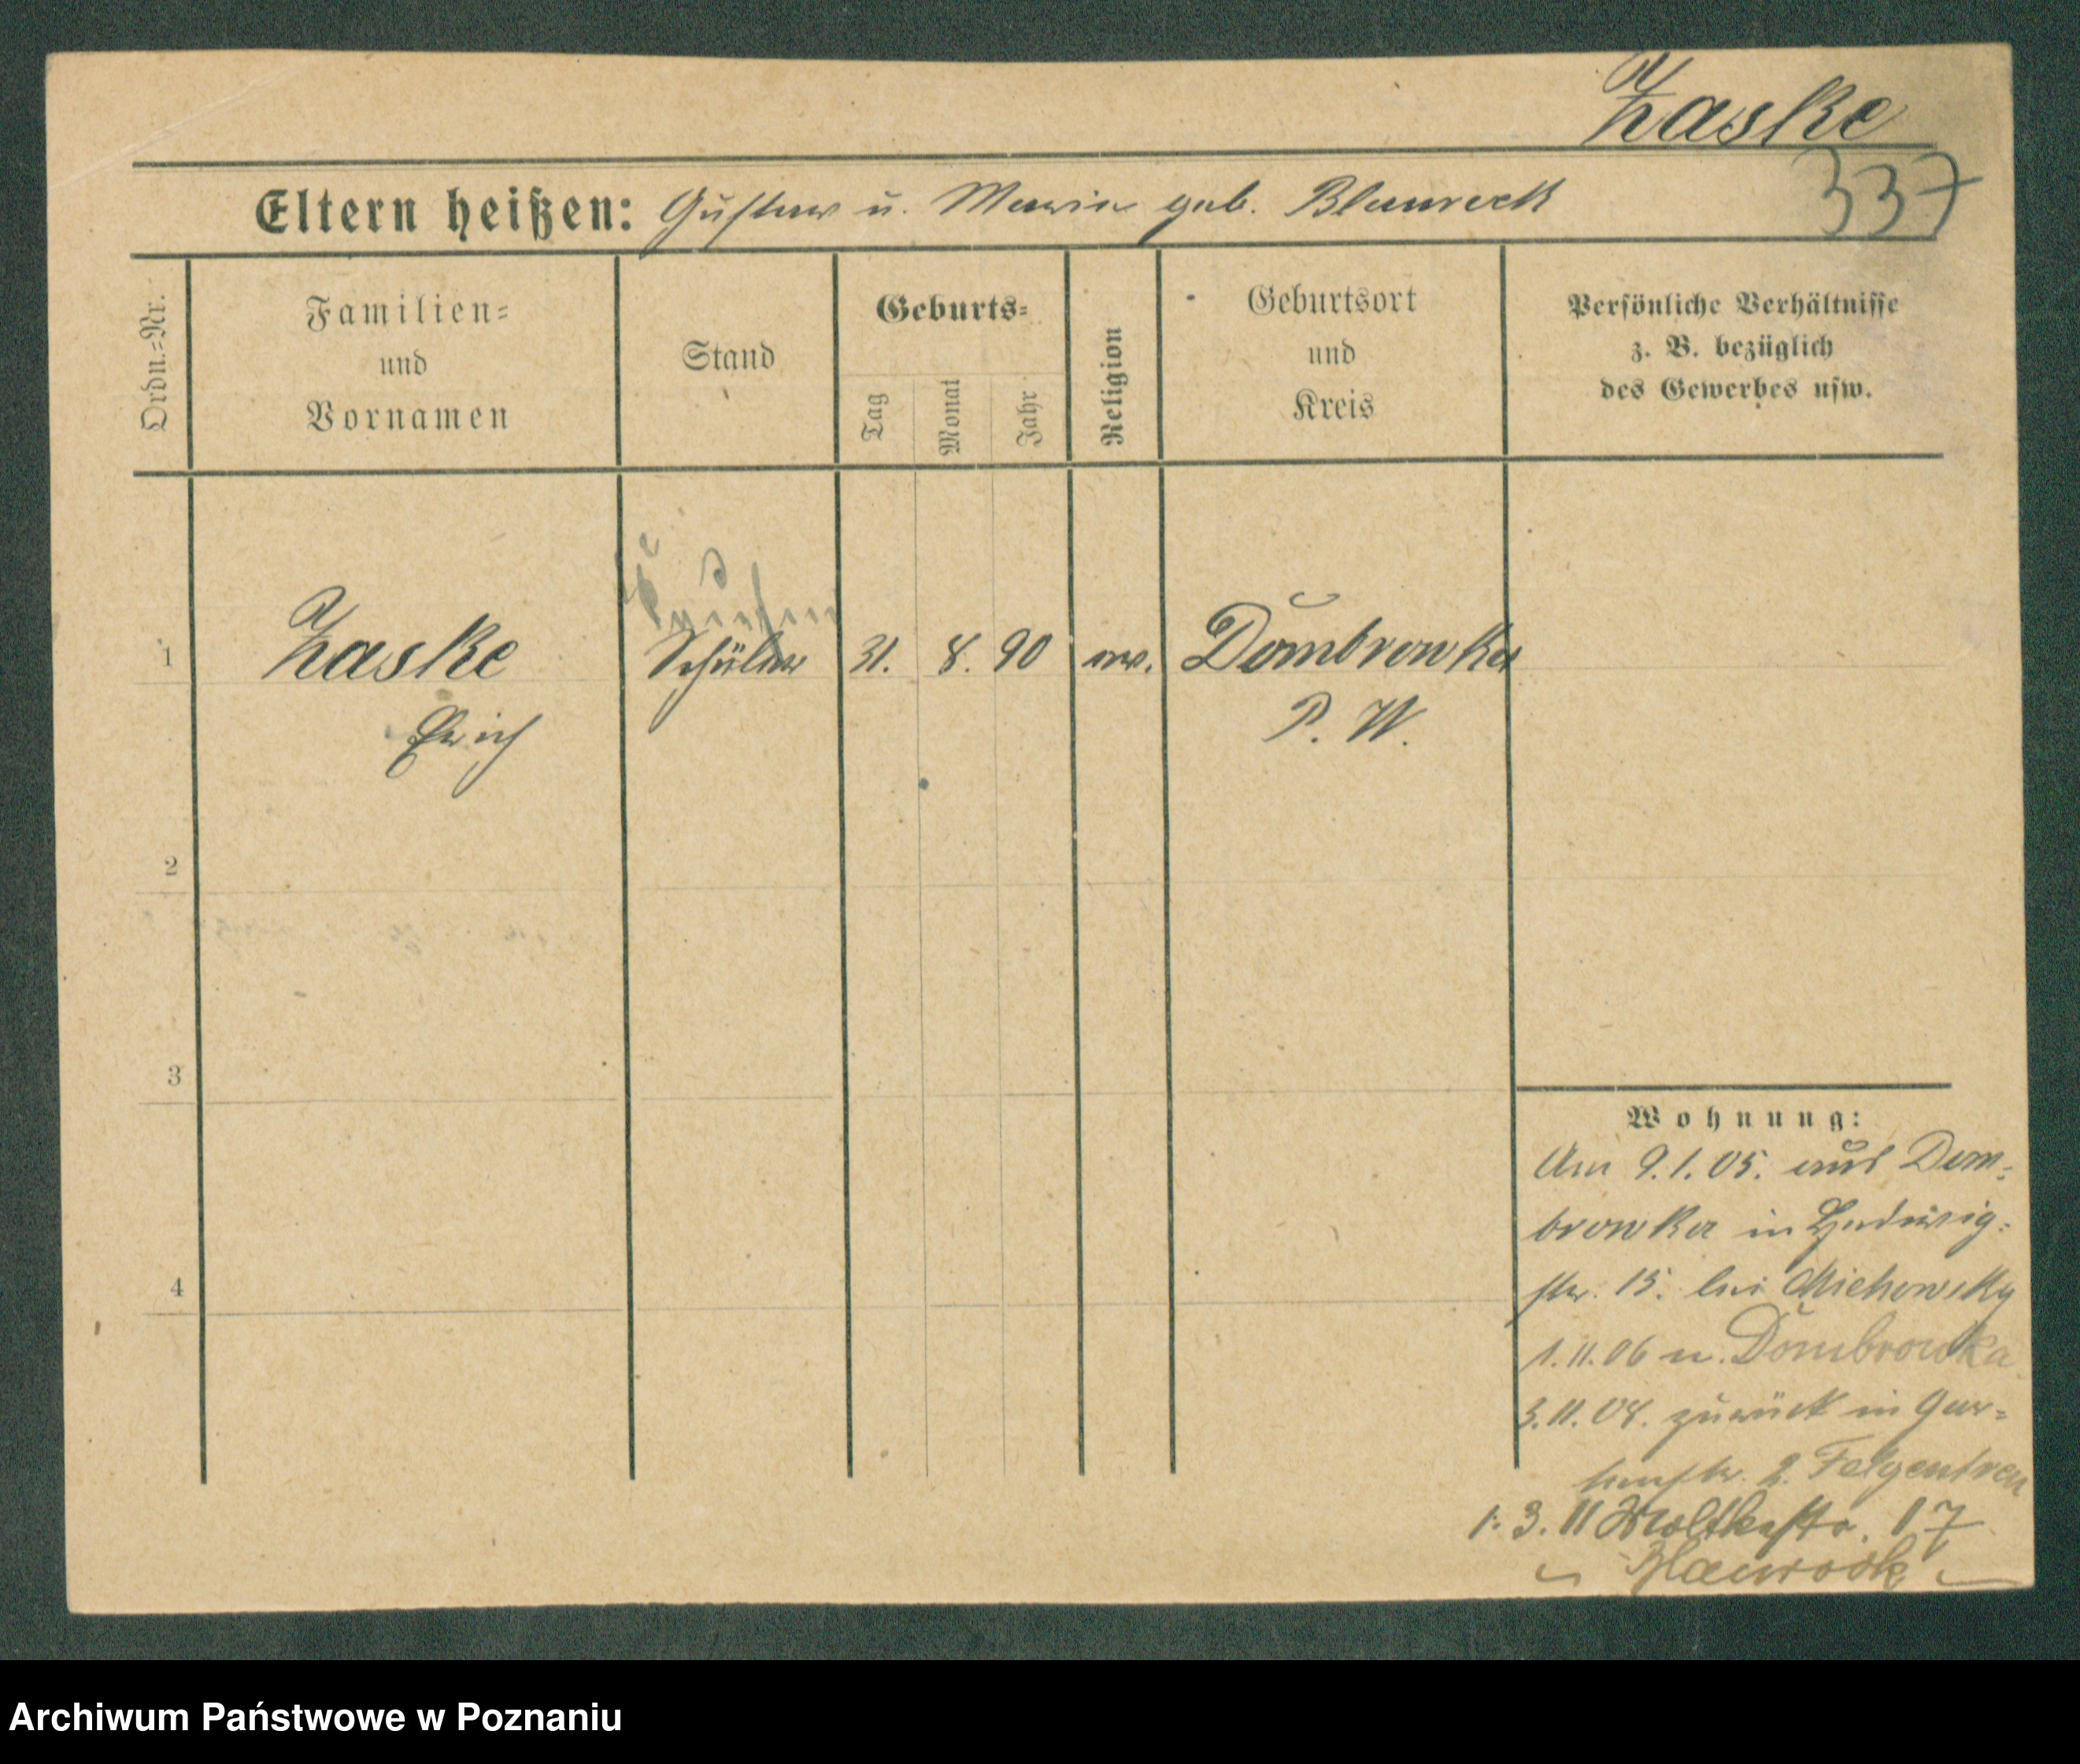 Zaske
337
Eltern heißen: Gustav u. Marie geb. Blaurock
Ordn.=Nr.
Familien=
und
Vornamen
Stand
Geburts=
Tag
Monat
Jahr
Religion
Geburtsort
und
Kreis
Persönliche Verhältnisse
z. B. bezüglich
des Gewerbes usw.
1 Zaske Schüler 31. 8. 90 ev. Dombrowka
Erich P. W.
2
3
4
Wohnung:
Am 9.1.05. aus Dom=
browka in Hedwig=
str. 15. bei Michowsky
1.11.06 n. Dombrowka
3.11.08. zurück in Gar=
tenstr. 2. Felgentreu
1. 3. 11 Moltkestr. 17
Blaurock
Archiwum Państwowe w Poznaniu